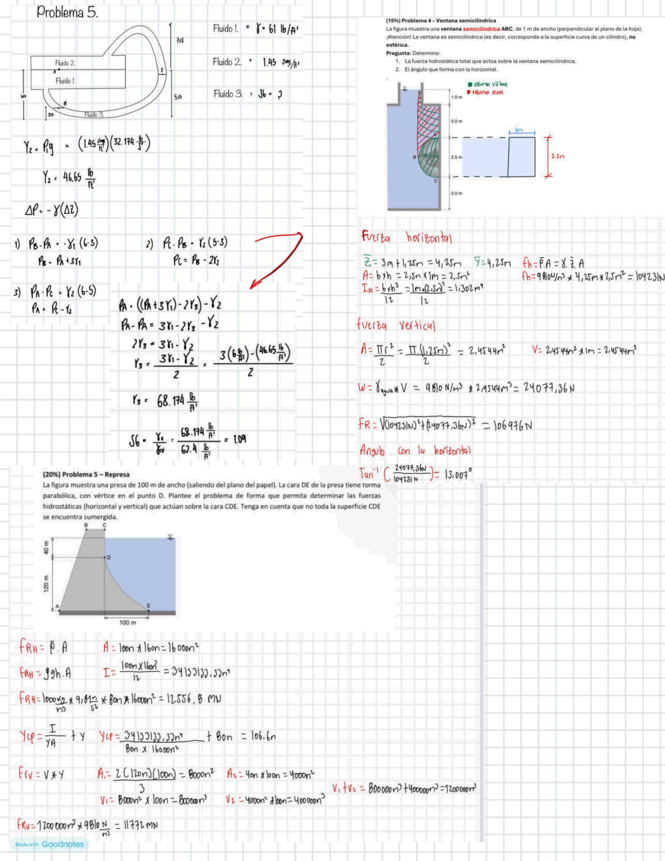 Problema 5.
Fluido 1. = γ = 61 lb/ft³
Fluido 2. = 1.45 slug/ft³
Fluido 3. = SG = ?
Fluido 2.
Fluido 1.
Fluido 3
γ₂ = ρ₂g = (1.45 slug/ft³)(32.174 ft/s²)
γ₂ = 46.65 lb/ft³
ΔP = -γ(ΔZ)
1) PB - PA = -γ₁(6-3)
PB = PA + 3γ₁
2) PC - PB = γ₂(5-3)
PC = PB - 2γ₃
3) PA - PC = γ₂(6-5)
PA = PC - γ₂
PA = ((PA + 3γ₁) - 2γ₃) - γ₂
PA - PA = 3γ₁ - 2γ₃ - γ₂
2γ₃ = 3γ₁ - γ₂
γ₃ = (3γ₁ - γ₂)/2 = (3(61 lb/ft³) - (46.65 lb/ft³))/2
γ₃ = 68.174 lb/ft³
SG = = 68.174 lb/ft³ / 62.4 lb/ft³ = 1.09
(15%) Problema 4 – Ventana semicilíndrica
La figura muestra una ventana semicilíndrica ABC, de 1 m de ancho (perpendicular al plano de la hoja).
¡Atención! La ventana es semicilíndrica (es decir, corresponde a la superficie curva de un cilindro), no
esférica.
Pregunta: Determine:
1. La fuerza hidrostática total que actúa sobre la ventana semicilíndrica.
2. El ángulo que forma con la horizontal.
1.0 m
2.0 m
2.5 m
2.0 m
A
B
C
1m
2.5m
Fuerza horizontal
Z̄ = 3m + 1,25m = 4,25m ȳ = 4,25m Fh = P̄ A = γ z̄ A
A = b x h = 2,5m x 1m = 2,5m² Fh = 9810 N/m³ x 4,25m x 2,5m² = 104231N
Ix = b x h³/12 = 1m x (2.5m)³/12 = 1,302m⁴
Fuerza vertical
A = πr²/2 = π(1,25m)²/2 = 2,4544m² V = 2,4544m² x 1m = 2,4544m³
W = γagua x V = 9810 N/m³ x 2,4544m³ = 24077,36N
FR = √((104231N)² + (24077,36N)²) = 106976N
Angulo con la horizontal
Tan⁻¹ (24077,36N / 104231N) = 13.007°
(20%) Problema 5 – Represa
La figura muestra una presa de 100 m de ancho (saliendo del plano del papel). La cara DE de la presa tiene forma
parabólica, con vértice en el punto D. Plantee el problema de forma que permita determinar las fuerzas
hidrostáticas (horizontal y vertical) que actúan sobre la cara CDE. Tenga en cuenta que no toda la superficie CDE
se encuentra sumergida.
B C
40 m
D
120 m
A E
100 m
FRH = P̄ . A A = 100m x 160m = 16000m²
FRH = ρgh . A I = 100m x 160³/12 = 34133133,33m⁴
FRH = 1000 kg/m³ x 9,81 m/s² x 80m x 16000m² = 12556,8 MN
Ycp = I/ȳA + ȳ Ycp = 34133133,33m⁴ / 80m x 16000m² + 80m = 106.6m
Frv = V x γ A₁ = 2(120m)(100m)/3 = 8000m² A₂ = 40m x 100m = 4000m²
V₁ + V₂ = 800000m³ + 400000m³ = 1200000m³
V₁ = 8000m² x 100m = 800000m³ V₂ = 4000m² x 100m = 400000m³
FRV = 1200000m³ x 9810 N/m³ = 11772 MN
Made with Goodnotes